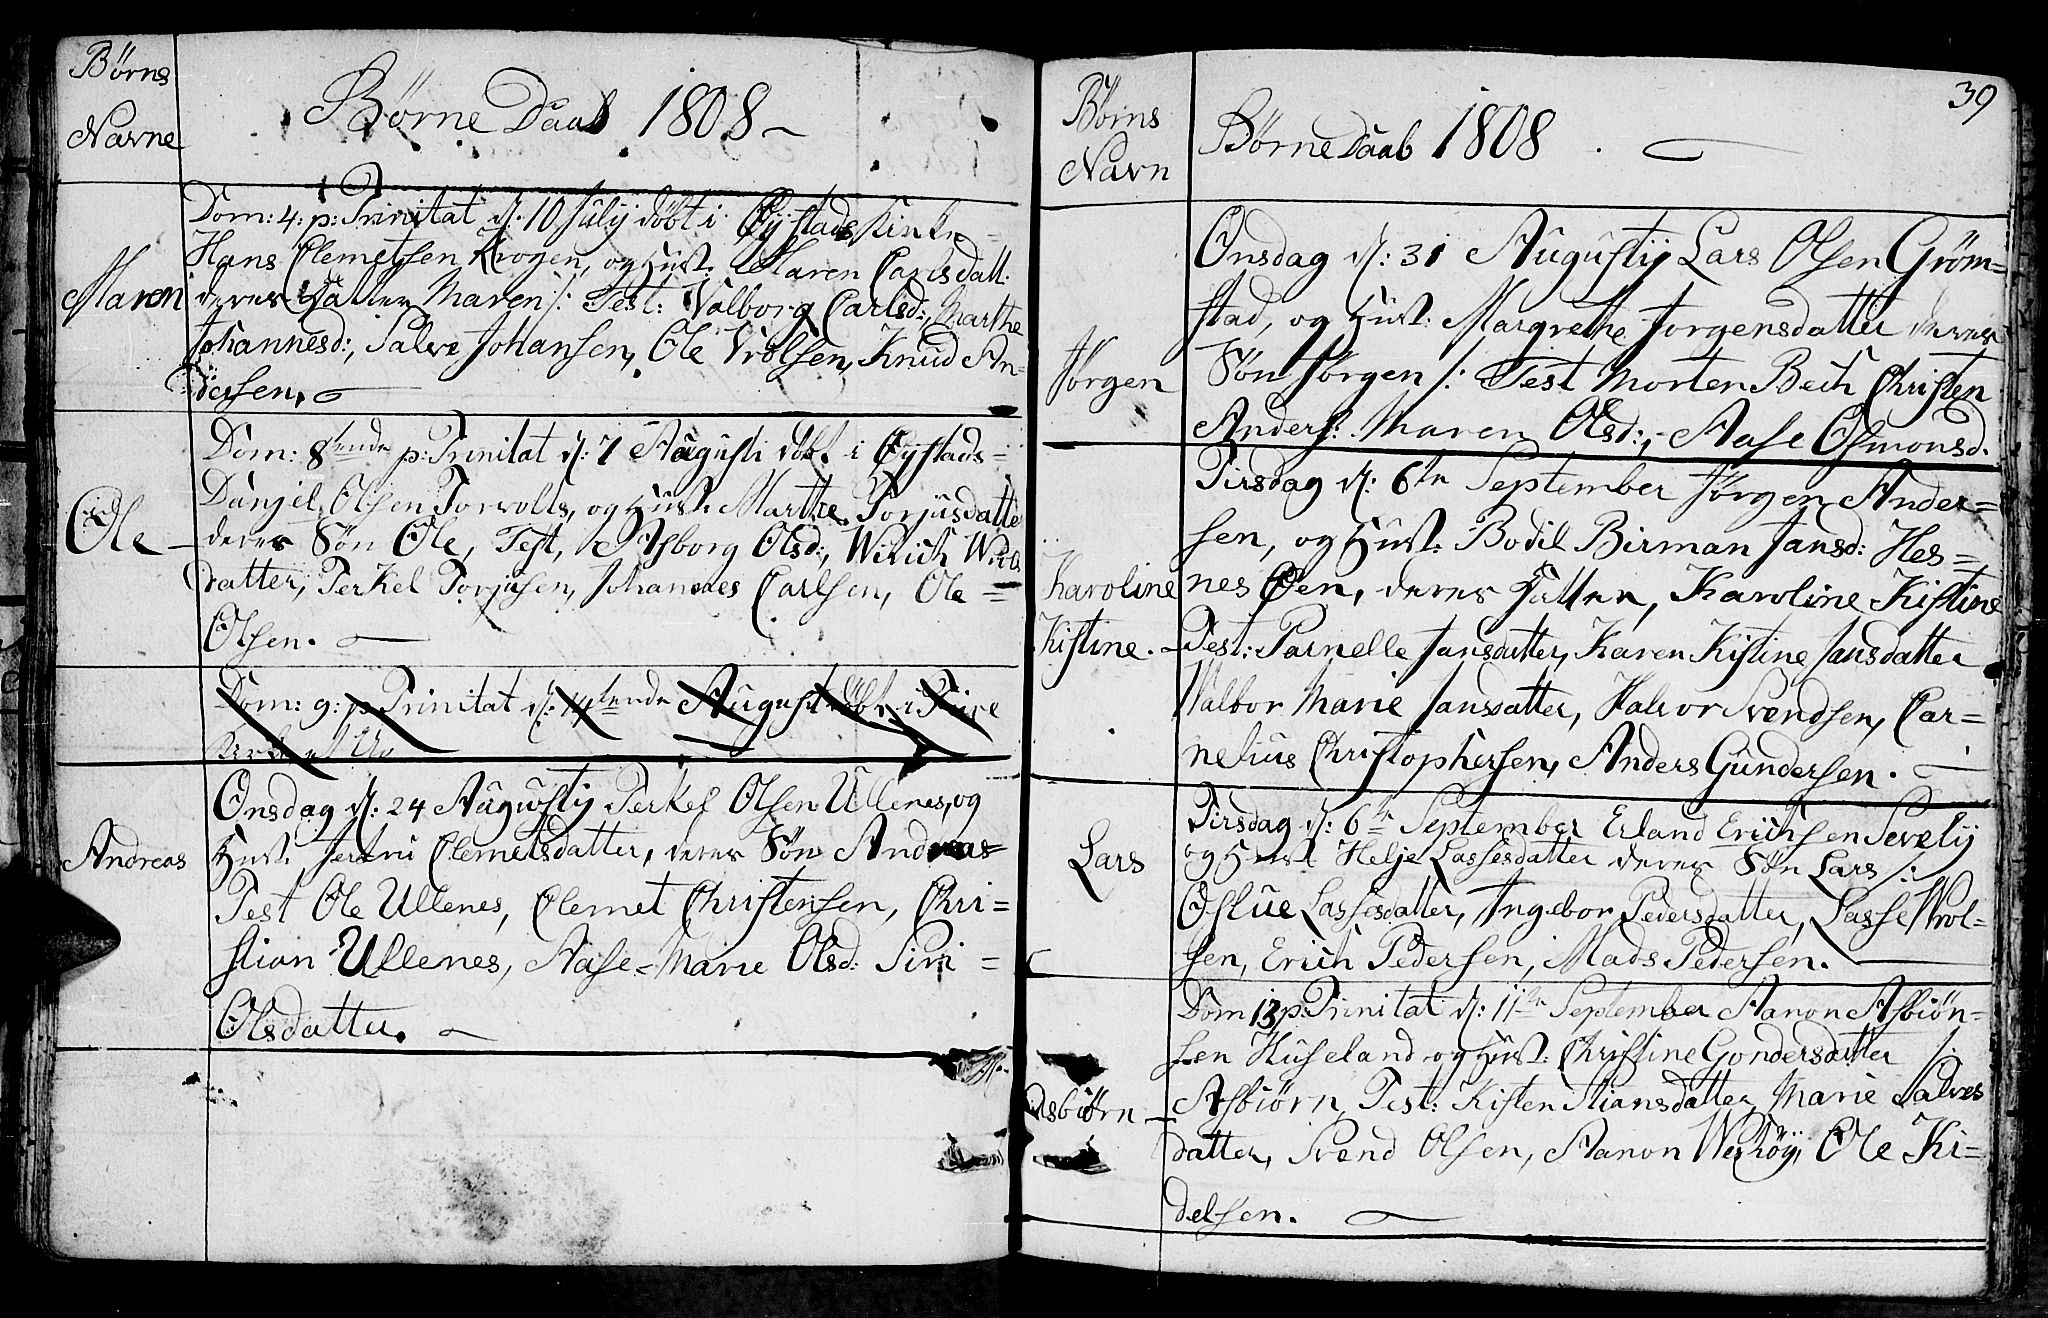 Børns
Navne
Børne Daab 1808
Dom: 4: p: Trinitat d: 10 Julij döbt i Øijstads Kirke
Hans Clemetsen Krogen, og Hust. Maren Carlsdatt.
Maren
deres Datter Maren /: Test: Valborg Carlsd:, Marthe
Johannesd:, Salve Johansen, Ole Vrolsen, Knud An-
dersen.
Dom: 8tende p: Trinitat d: 7 Augusti döbt i Øystads
Danjel Olsen Torvolts, og Hust. Marthe Torjusdatte
Ole
deres Søn Ole, Test, Asborg Olsd:, Wirich
datter, Terkel Torjusen, Johannes Carlsen, Ole
Olsen.
Dom: 9: p Trinitat d: 14tende August döbt i
Onsdag d: 24 Augustij Terkel Olsen Ullenes, og
Andreas
Hust. Clemetsdatter, deres Søn Andreas
Test Ole Ullenes, Clemet Christensen, Chri=
stian Ullenes, Aase=Marie Olsd: Siri =
Olsdatter.
39
Børns
Navn
Børne Daab 1808
Onsdag d: 31 Augustij Lars Olsen Grøm=
stad, og Hust: Margrethe Jorgensdatter deres
Jørgen
Søn Jørgen /: Test Morten Bech Christen
Anders: Maren Olsd:, Aase Osmonsd.
Tirsdag d: 6te September Jørgen Ander=
sen, og Hust: Bodil Birman Jansd: Hes=
Karoline
nes Øen, deres Datter, Karoline Kistine
Kistine.
Test: Parnelle Jansdatter, Karen Kistine Jansdatter
Valbor Marie Jansdatter, Halvor Svendsen, Car=
nelius Christophersen, Anders Gundersen.
Tirsdag d: 6te September Erland Erichsen Sevelij
Lars
og Hust Helje Lassesdatter deres Søn Lars /:
Oslue Lassesdatter, Ingebor Pedersdatter, Lasse Wrol-
sen, Erich Pedersen, Mads Pedersen.
Dom 13 p: Trinitat d: 11te September Aanon Asbiøn-
sen Huseland og Hust: Christine Gondersdatter /:
Asbiørn
Asbiørn, Test: Kisten Stiansdatter, Marie Salves
datter, Svend Olsen, Aanon Werkøy, Ole Ki=
delsen.